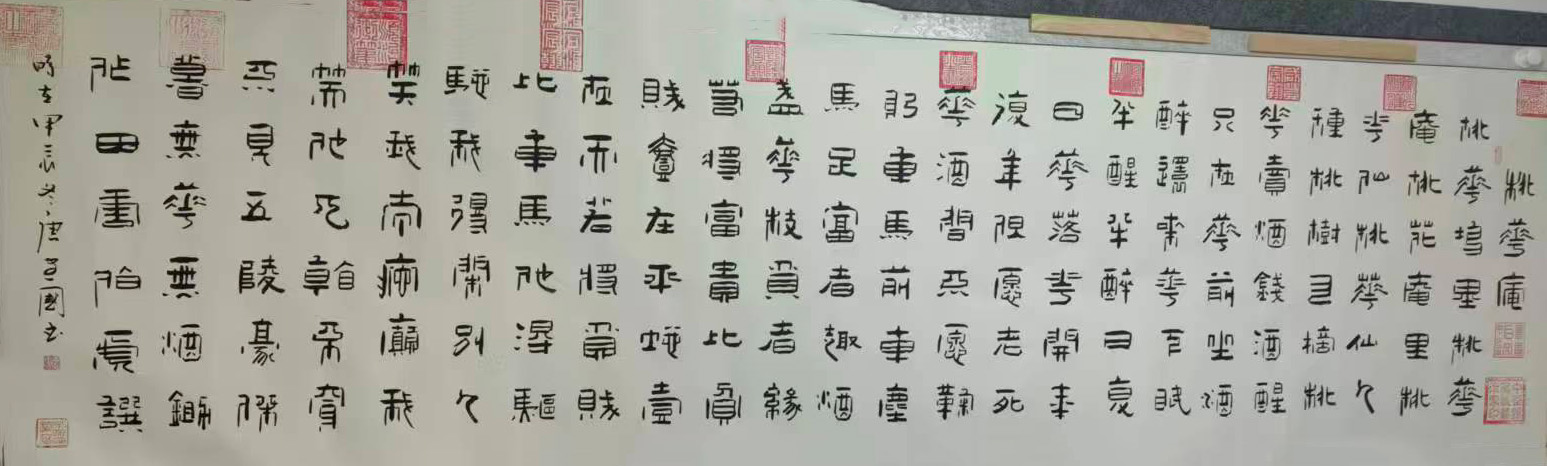 桃華庵
桃華塢里桃華
庵桃花庵里桃
花仙桃華仙人
種桃樹又摘桃
華賣酒錢酒醒
只在華前坐酒
醉還來華下眠
半醒半醉日复
日華落花開年
復年但愿老死
華酒間不愿鞠
躬車馬前車塵
馬足富者趣酒
盞華枝貧者緣
若將富貴比貧
賤壹在平地壹
在天若將貧賤
比車馬他得驅
馳我得閑別人
笑我忒瘋癲我
笑他人看不穿
不見五陵豪傑
墓無華無酒鋤
作田唐伯虎譔
時在甲辰冬唐國书